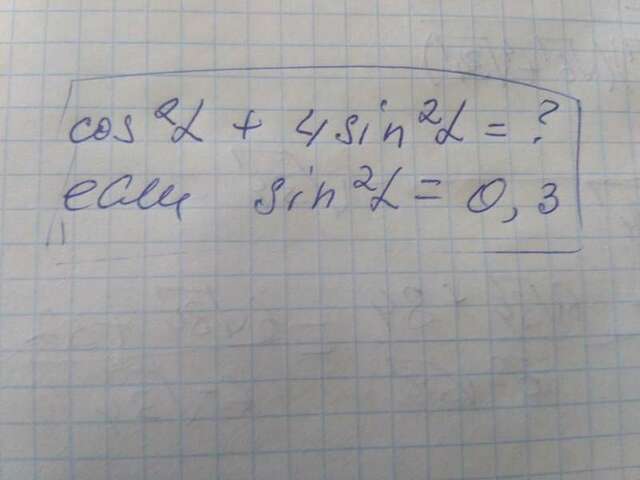 cos²α + 4sin²α = ?
если sin²α = 0,3